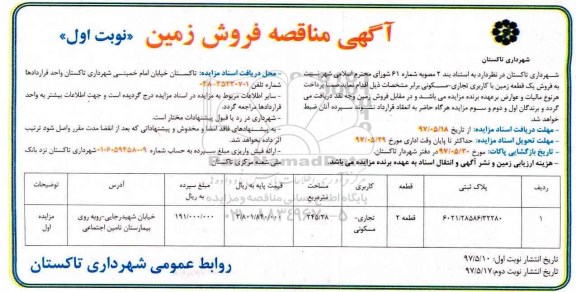 آگهی مناقصه فروش زمین «نوبت اول»
شهرداری تاکستان
شهرداری تاکستان در نظردارد به استناد بند 2 مصوبه شماره 61 شورای محترم اسلامی شهر نسبت
به فروش یک قطعه زمین با کاربری تجاری-مسکونی برابر مشخصات ذیل اقدام نماید. پرداخت
هرنوع مالیات و عوارض برعهده برنده مزایده می باشد و در مقابل فروش زمین وجه نقد دریافت می
گردد و برندگان اول و دوم و سوم مزایده هرگاه حاضر به انعقاد قرارداد نشوند سپرده آنان ضبط
خواهد شد.
- مهلت دریافت اسناد مزایده: از تاریخ 97/05/18
- مهلت تحویل اسناد مزایده: حداکثر تا پایان وقت اداری مورخ 97/05/29
- تاریخ بازگشایی پاکات: مورخ 97/05/30 در دفتر شهردار تاکستان.
- هزینه ارزیابی زمین و نشر آگهی و انتقال اسناد به عهده برنده مزایده می باشد.
- محل دریافت اسناد مزایده: تاکستان خیابان امام خمینی شهرداری تاکستان واحد قراردادها
شماره تلفن 028-35230701
- سایر اطلاعات مربوط به مزایده در اسناد مزایده درج گردیده است و جهت اطلاعات بیشتر به واحد
قراردادها مراجعه گردد.
- شهرداری در رد یا قبول پیشنهادات مختار است.
- به پیشنهادهای فاقد امضا و مخدوش و پیشنهاداتی که بعد از انقضا مدت مقرر واصل شود ترتیب
اثر داده نخواهد شد.
- ارائه فیش واریزی مبلغ سپرده به حساب شماره شهرداری تاکستان نزد بانک
ملی شعبه مرکزی تاکستان
ردیف پلاک ثبتی قطعه کاربری مساحت مترمربع قیمت پایه به ریال مبلغ سپرده به ریال آدرس توضیحات
1 6021/28586/32280 قطعه 2 تجاری-مسکونی 225/38 191/000/000 خیابان شهیدرجایی-روبه روی بیمارستان تامین اجتماعی مزایده اول
تاریخ انتشار نوبت اول: 97/5/10
تاریخ انتشار نوبت دوم: 97/5/17
روابط عمومی شهرداری تاکستان